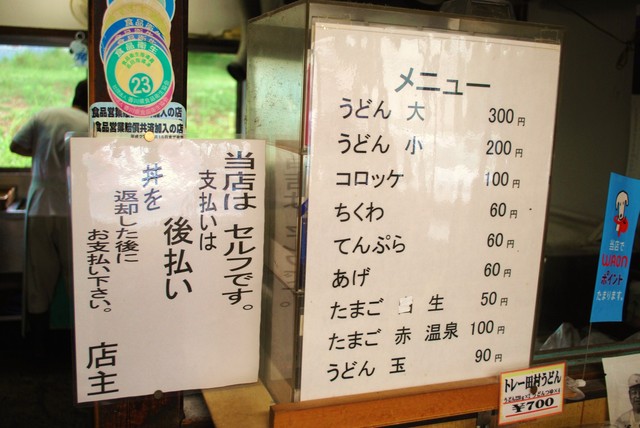 食品衛生
23
食品営業賠償共済加入の店
食品営業賠償共済加入の店
当店は セルフです。
支払いは
後払い
丼を
返却した後に
お支払い下さい。
店主
メニュー
うどん 大 300円
うどん 小 200円
コロッケ 100円
ちくわ 60円
てんぷら 60円
あげ 60円
たまご 生 50円
たまご 赤 温泉 100円
うどん 玉 90円
当店で
WAON
ポイント
たまります。
トレー田村うどん
¥700